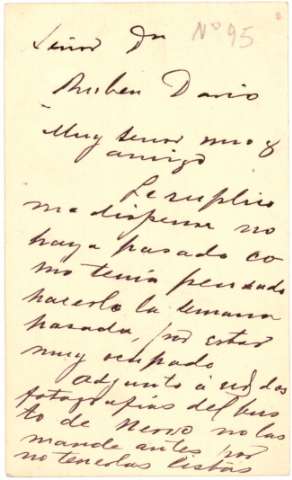 Señor Dn Nº 95
Ruben Dario
Muy señor mio y
amigo
Le suplico
me dispense no
haya pasado co
mo tenia pensado
hacerlo la semana
pasada, por estar
muy ocupado
Adjunto á ud dos
fotografias del bus
to de Nervo no las
mande antes por
no tenerlas listas